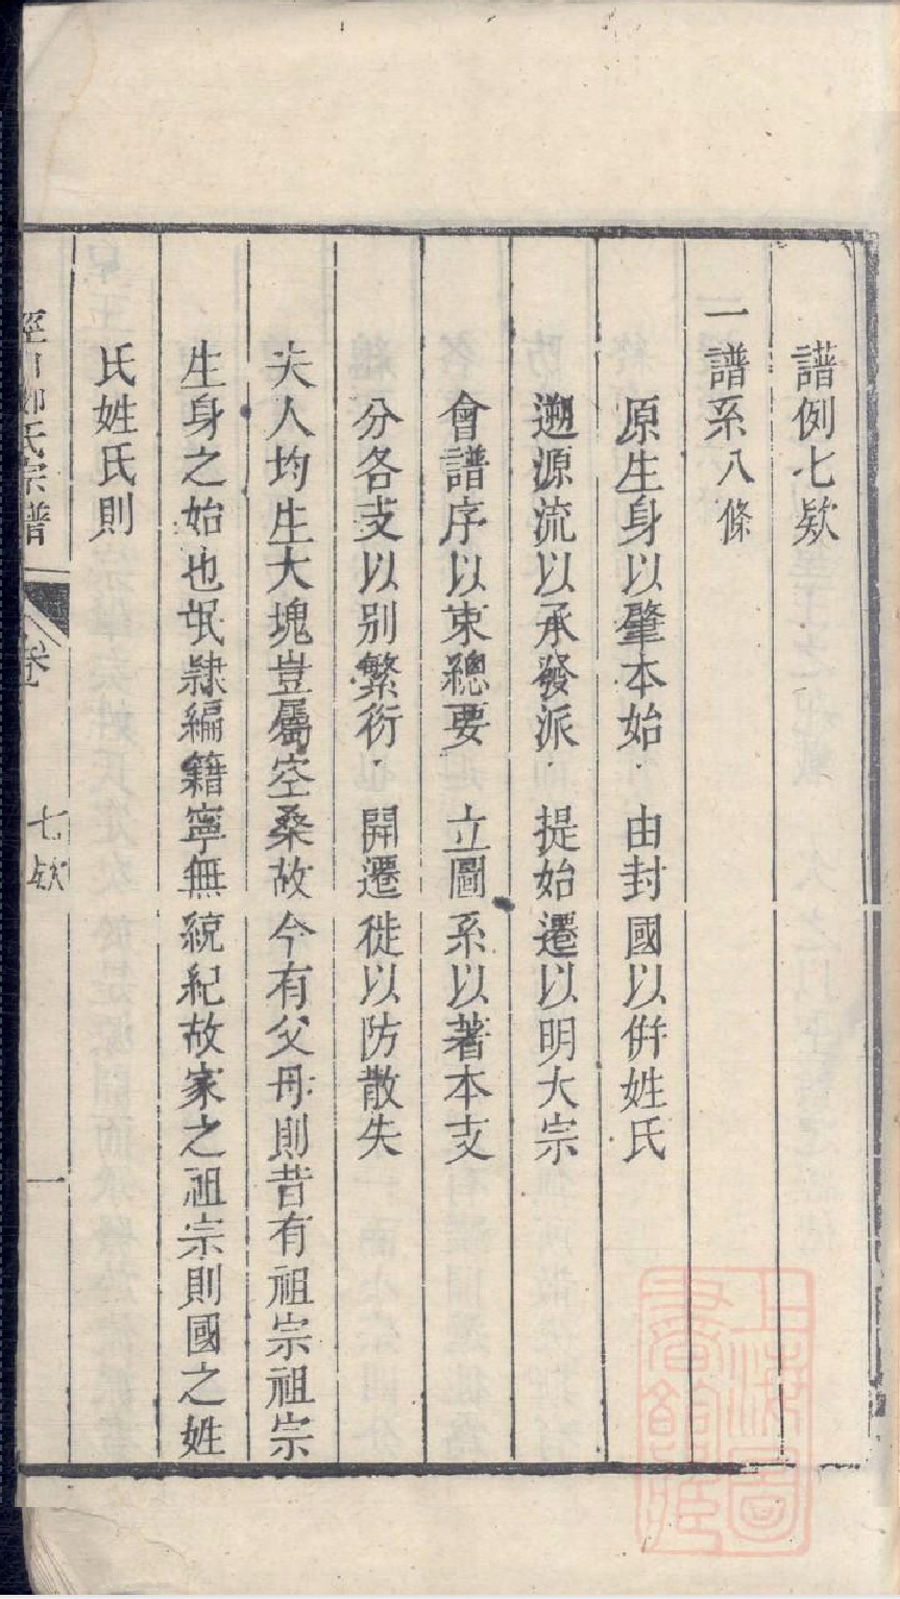 譜例七欵
一譜系八條
原生身以肇本始 由封國以併姓氏
遡源流以承發派 提始遷以明大宗
會譜序以束總要 立圖系以著本支
分各支以别繁衍 開遷徙以防散失
夫人均生大塊豈屬空桑故今有父母則昔有祖宗祖宗
生身之始也氓隸編籍寧無統紀故家之祖宗則國之姓
氏姓氏則
氏宗譜 卷 七欵 一
上海圖書館藏